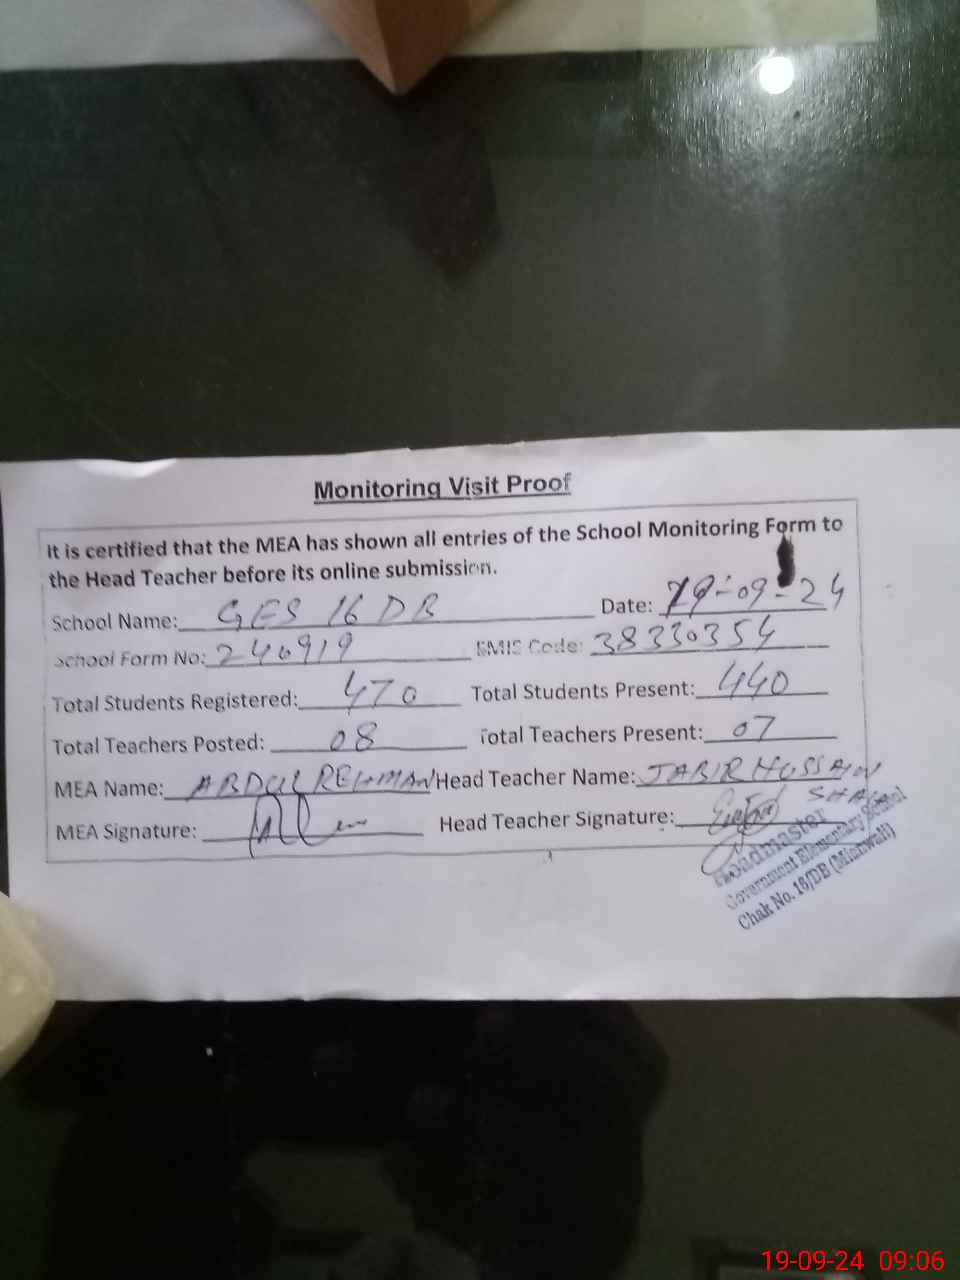 Monitoring Visit Proof
It is certified that the MEA has shown all entries of the School Monitoring Form to
the Head Teacher before its online submission.
School Name: GES 16 DB Date: 19-09-24
School Form No: 240919 EMIS Code: 38330354
Total Students Registered: 470 Total Students Present: 440
Total Teachers Posted: 08 Total Teachers Present: 07
MEA Name: ABDUL REHMAN Head Teacher Name: JABIR HUSSAIN
SHAH
MEA Signature: Head Teacher Signature:
Headmaster
Government Elementary School
Chak No. 16/DB (Mianwali)
19-09-24 09:06